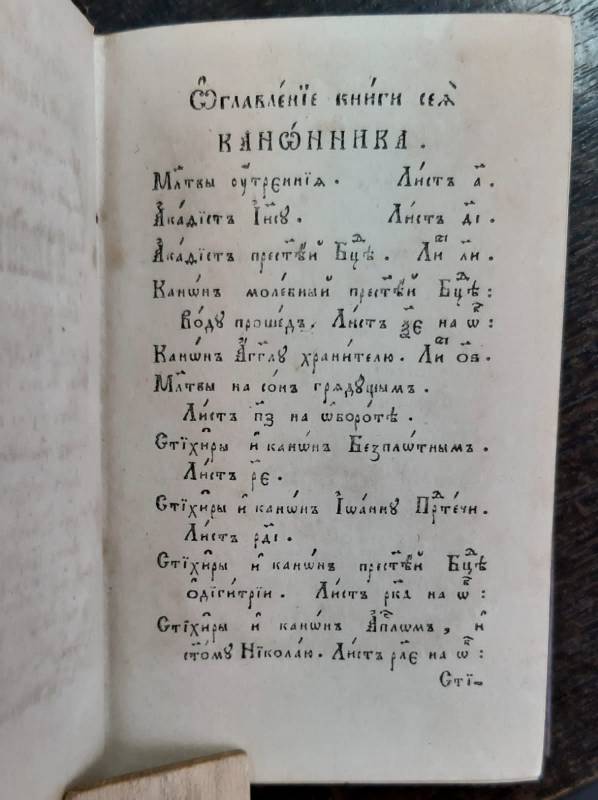 Ѡ҆главле́нїе кни́ги сеѧ̀
КАНѠ́ННИКА.
Мл҃твы ᲂу҆́треннїѧ. Ли́стъ а҃.
А҆ка́ѳїстъ І҆и҃су. Ли́стъ д҃і.
А҆ка́ѳїстъ прест҃ѣ́й Бц҃ѣ. Лиⷭ҇
Канѡ́нъ моле́бный прест҃ѣ́й Бц҃ѣ:
Во́ду проше́дъ. Ли́стъ ѯ҃е на ѡ҆б:
Канѡ́нъ А҆́гг҃лу храни́телю. Лиⷭ҇ о҃в.
Мл҃твы на со́нъ грѧдꙋ́щымъ.
Ли́стъ п҃з на ѡ҆боро́тѣ.
Стїхи̑ры и҆ канѡ́нъ Безпло́тнымъ.
Ли́стъ р҃е.
Стїхи̑ры и҆ канѡ́нъ І҆ѡа́нну Прⷣте́чи.
Ли́стъ рд҃і.
Стїхи̑ры и҆ канѡ́нъ прест҃ѣ́й Бц҃ѣ
ѻ҆диги́трїи. Ли́стъ рк҃д на ѡ҆б:
Стїхи̑ры и҆ канѡ́нъ А҆пⷭ҇лѡмъ, и҆
ст҃о́му Нїкола́ю. Ли́стъ рл҃е на ѡ҆б:
Стї-